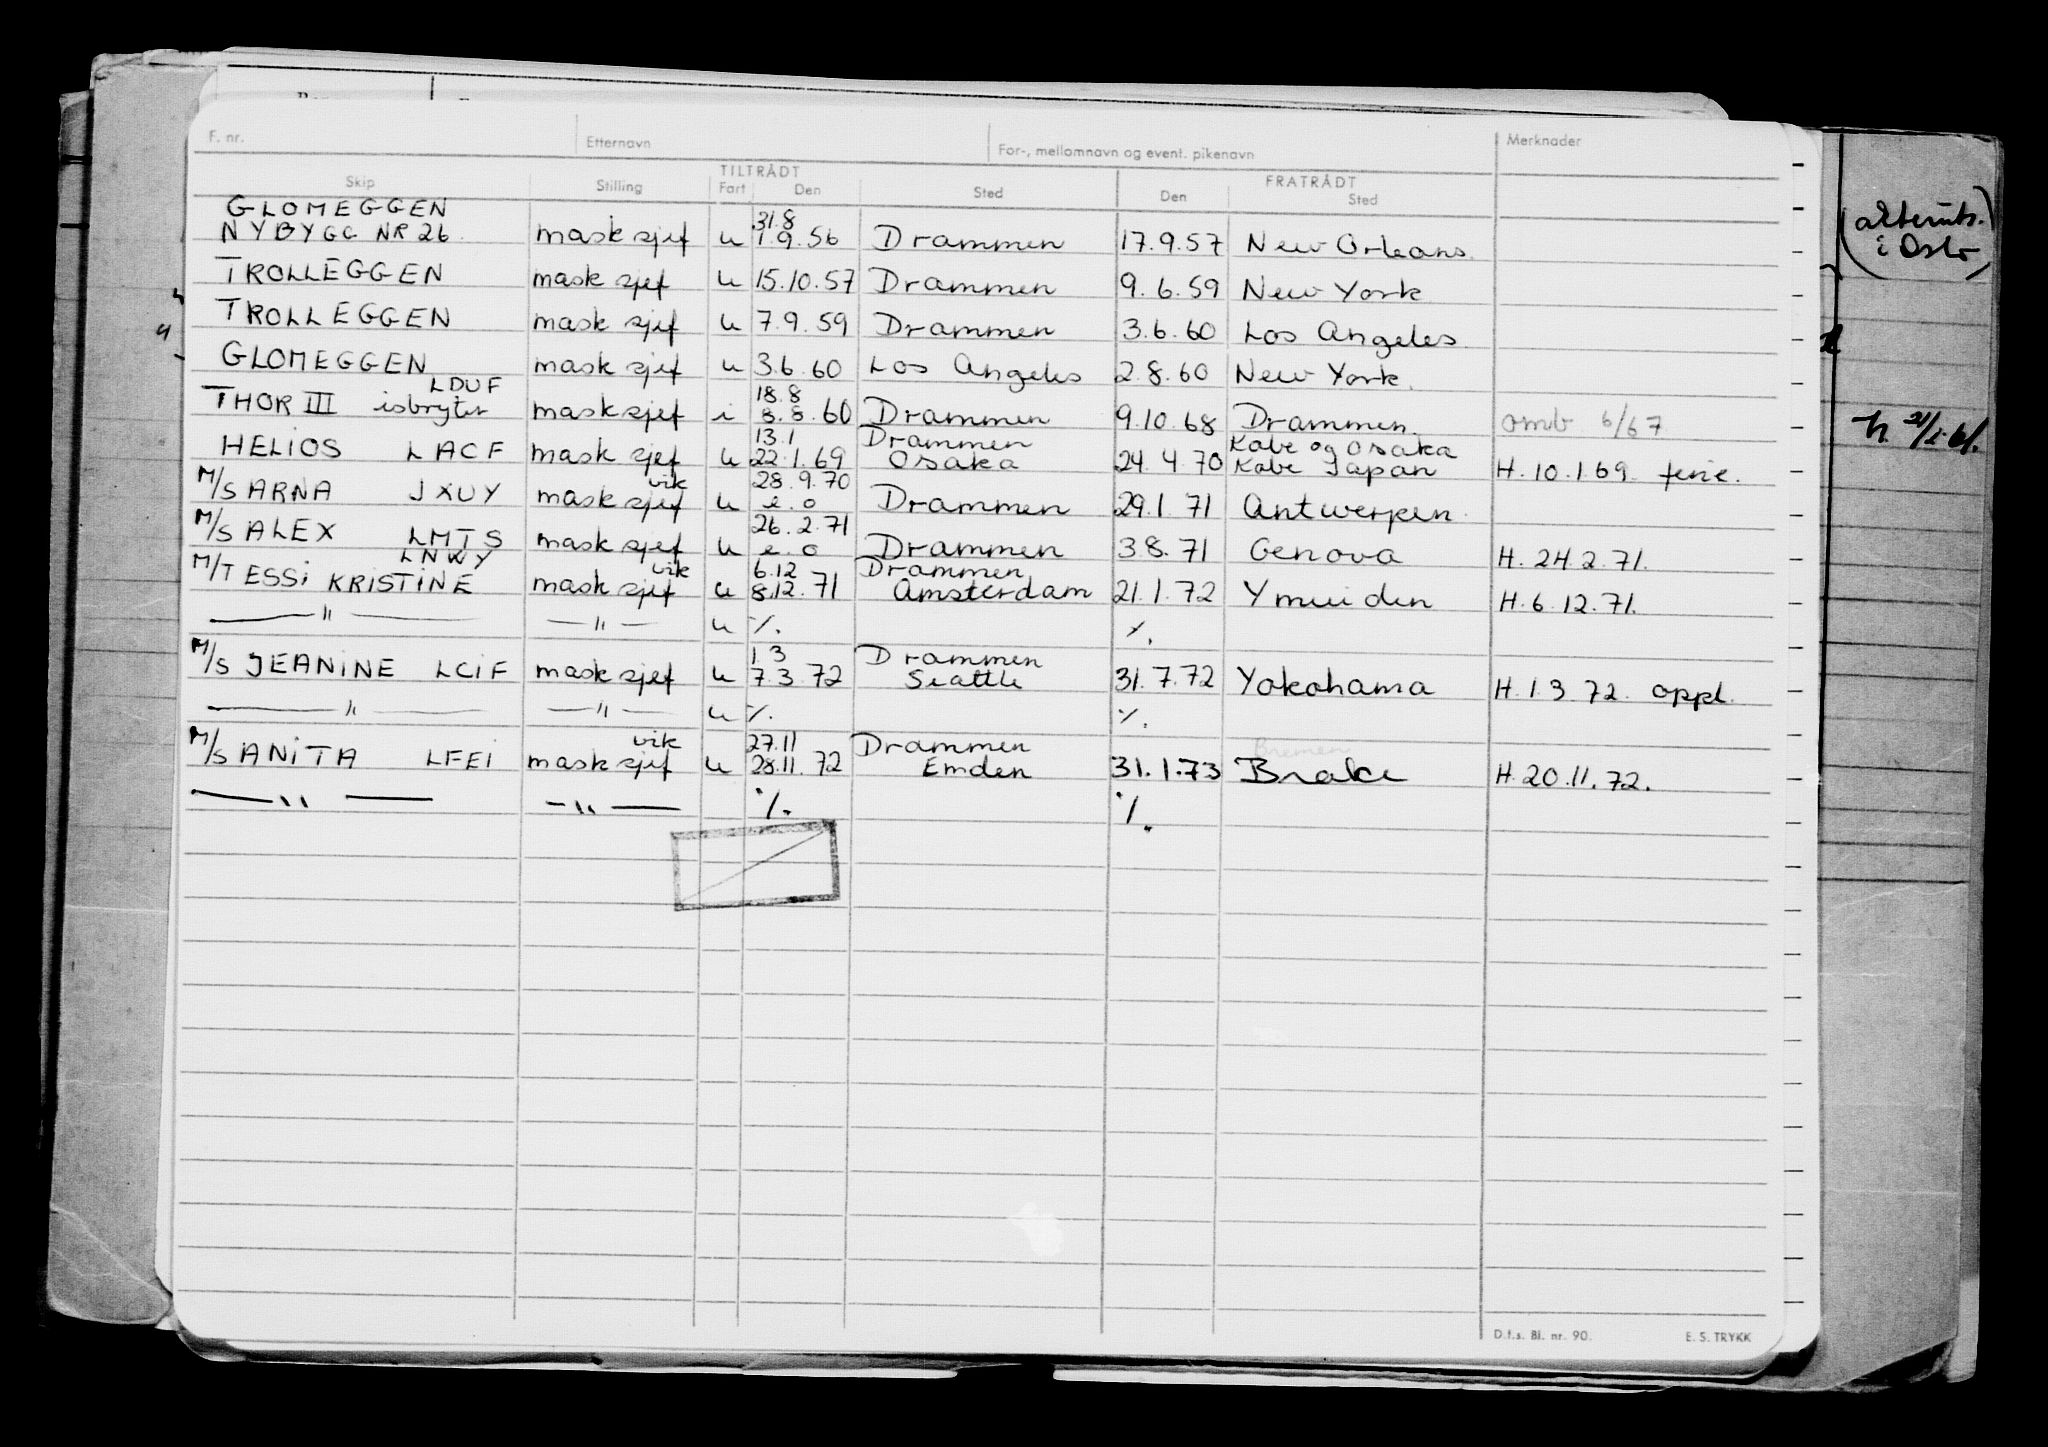 F. nr. Etternavn For-, mellomnavn og event. pikenavn Merknader
TILTRÅDT FRATRÅDT
Skip Stilling Fart Den Sted Den Sted
GLOMEGGEN 31.8
NYBYGG NR 26 mask sjef u 1.9.56 Drammen 17.9.57 New Orleans
TROLLEGGEN mask sjef u 15.10.57 Drammen 9.6.59 New York
TROLLEGGEN mask sjef u 7.9.59 Drammen 3.6.60 Los Angeles
GLOMEGGEN mask sjef u 3.6.60 Los Angeles 2.8.60 New York.
LDUF 18.8
THOR III isbryter mask sjef i 8.8.60 Drammen 9.10.68 Drammen. omb 6/67
13.1 Drammen Kobe og Osaka
HELIOS LACF mask sjef u 22.1.69 Osaka 24.4.70 Kobe Japan H.10.1.69. ferie.
vik 28.9.70
M/S ARNA JXUY mask sjef u e.o Drammen 29.1.71 Antwerpen
26.2.71
M/S ALEX LMTS mask sjef u e.o Drammen 3.8.71 Genova H.24.2.71.
LNWY vik 6.12 Drammen
M/T ESSI KRISTINE mask sjef u 8.12.71 Amsterdam 21.1.72 Ymuiden H.6.12.71.
—"— —"— u %. %.
1.3 Drammen
M/S JEANINE LCIF mask sjef u 7.3.72 Seattle 31.7.72 Yokohama H.1.3.72. oppl.
—"— —"— u %. %.
vik 27.11 Drammen Bremen
M/S ANITA LFEI mask sjef u 28.11.72 Emden 31.1.73 Brake H.20.11.72.
—"— —"— %. %.
D.f.s. Bl. nr. 90. E. S. TRYKK
i Oslo